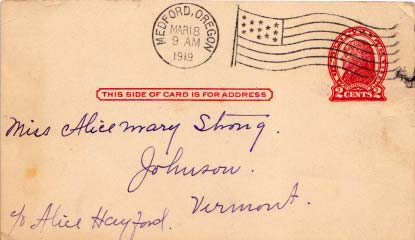 MEDFORD, OREGON
MAR 18
9 AM
1919
2 CENTS 2
THIS SIDE OF CARD IS FOR ADDRESS
Miss Alice Mary Strong.
Johnson.
Vermont.
c/o Alice Hayford.